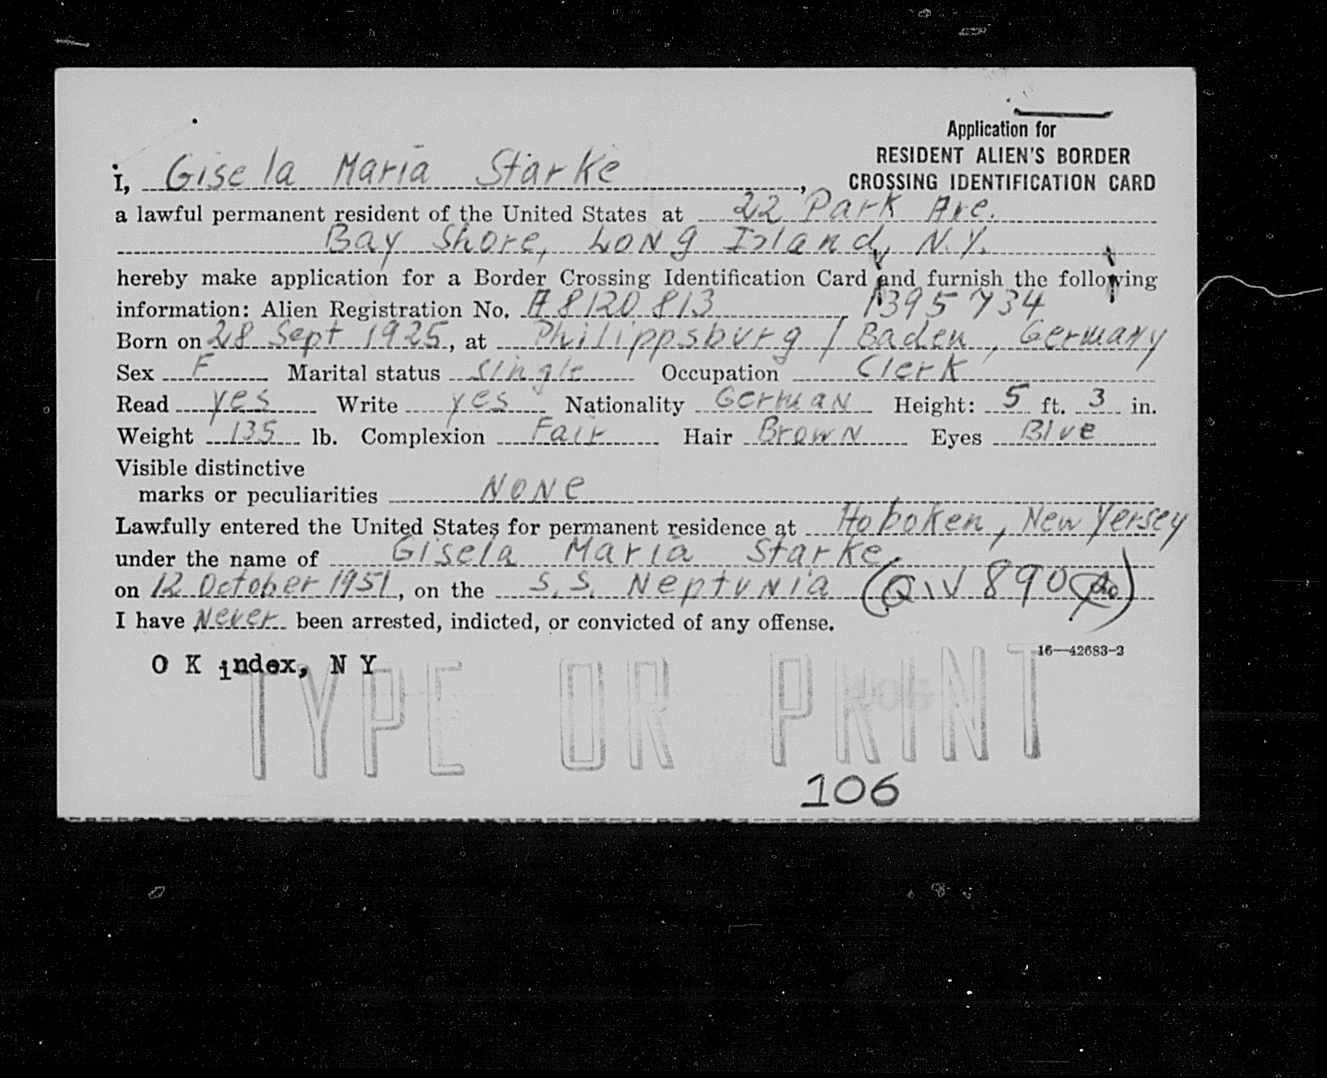 Application for
RESIDENT ALIEN'S BORDER
CROSSING IDENTIFICATION CARD
I, Gisela Maria Starke,
a lawful permanent resident of the United States at 22 Park Ave.
Bay Shore, Long Island, N.Y.
hereby make application for a Border Crossing Identification Card and furnish the following
information: Alien Registration No. A8120813 1395734
Born on 28 Sept 1925, at Philippsburg / Baden, Germany
Sex F Marital status single Occupation Clerk
Read yes Write yes Nationality German Height: 5 ft. 3 in.
Weight 135 lb. Complexion Fair Hair Brown Eyes Blue
Visible distinctive
marks or peculiarities None
Lawfully entered the United States for permanent residence at Hoboken, New Yersey
under the name of Gisela Maria Starke.
on 12 October 1951, on the S.S. Neptunia (QIV 890
I have Never been arrested, indicted, or convicted of any offense.
16—42683-2
O K index, N Y
TYPE OR PRINT
106